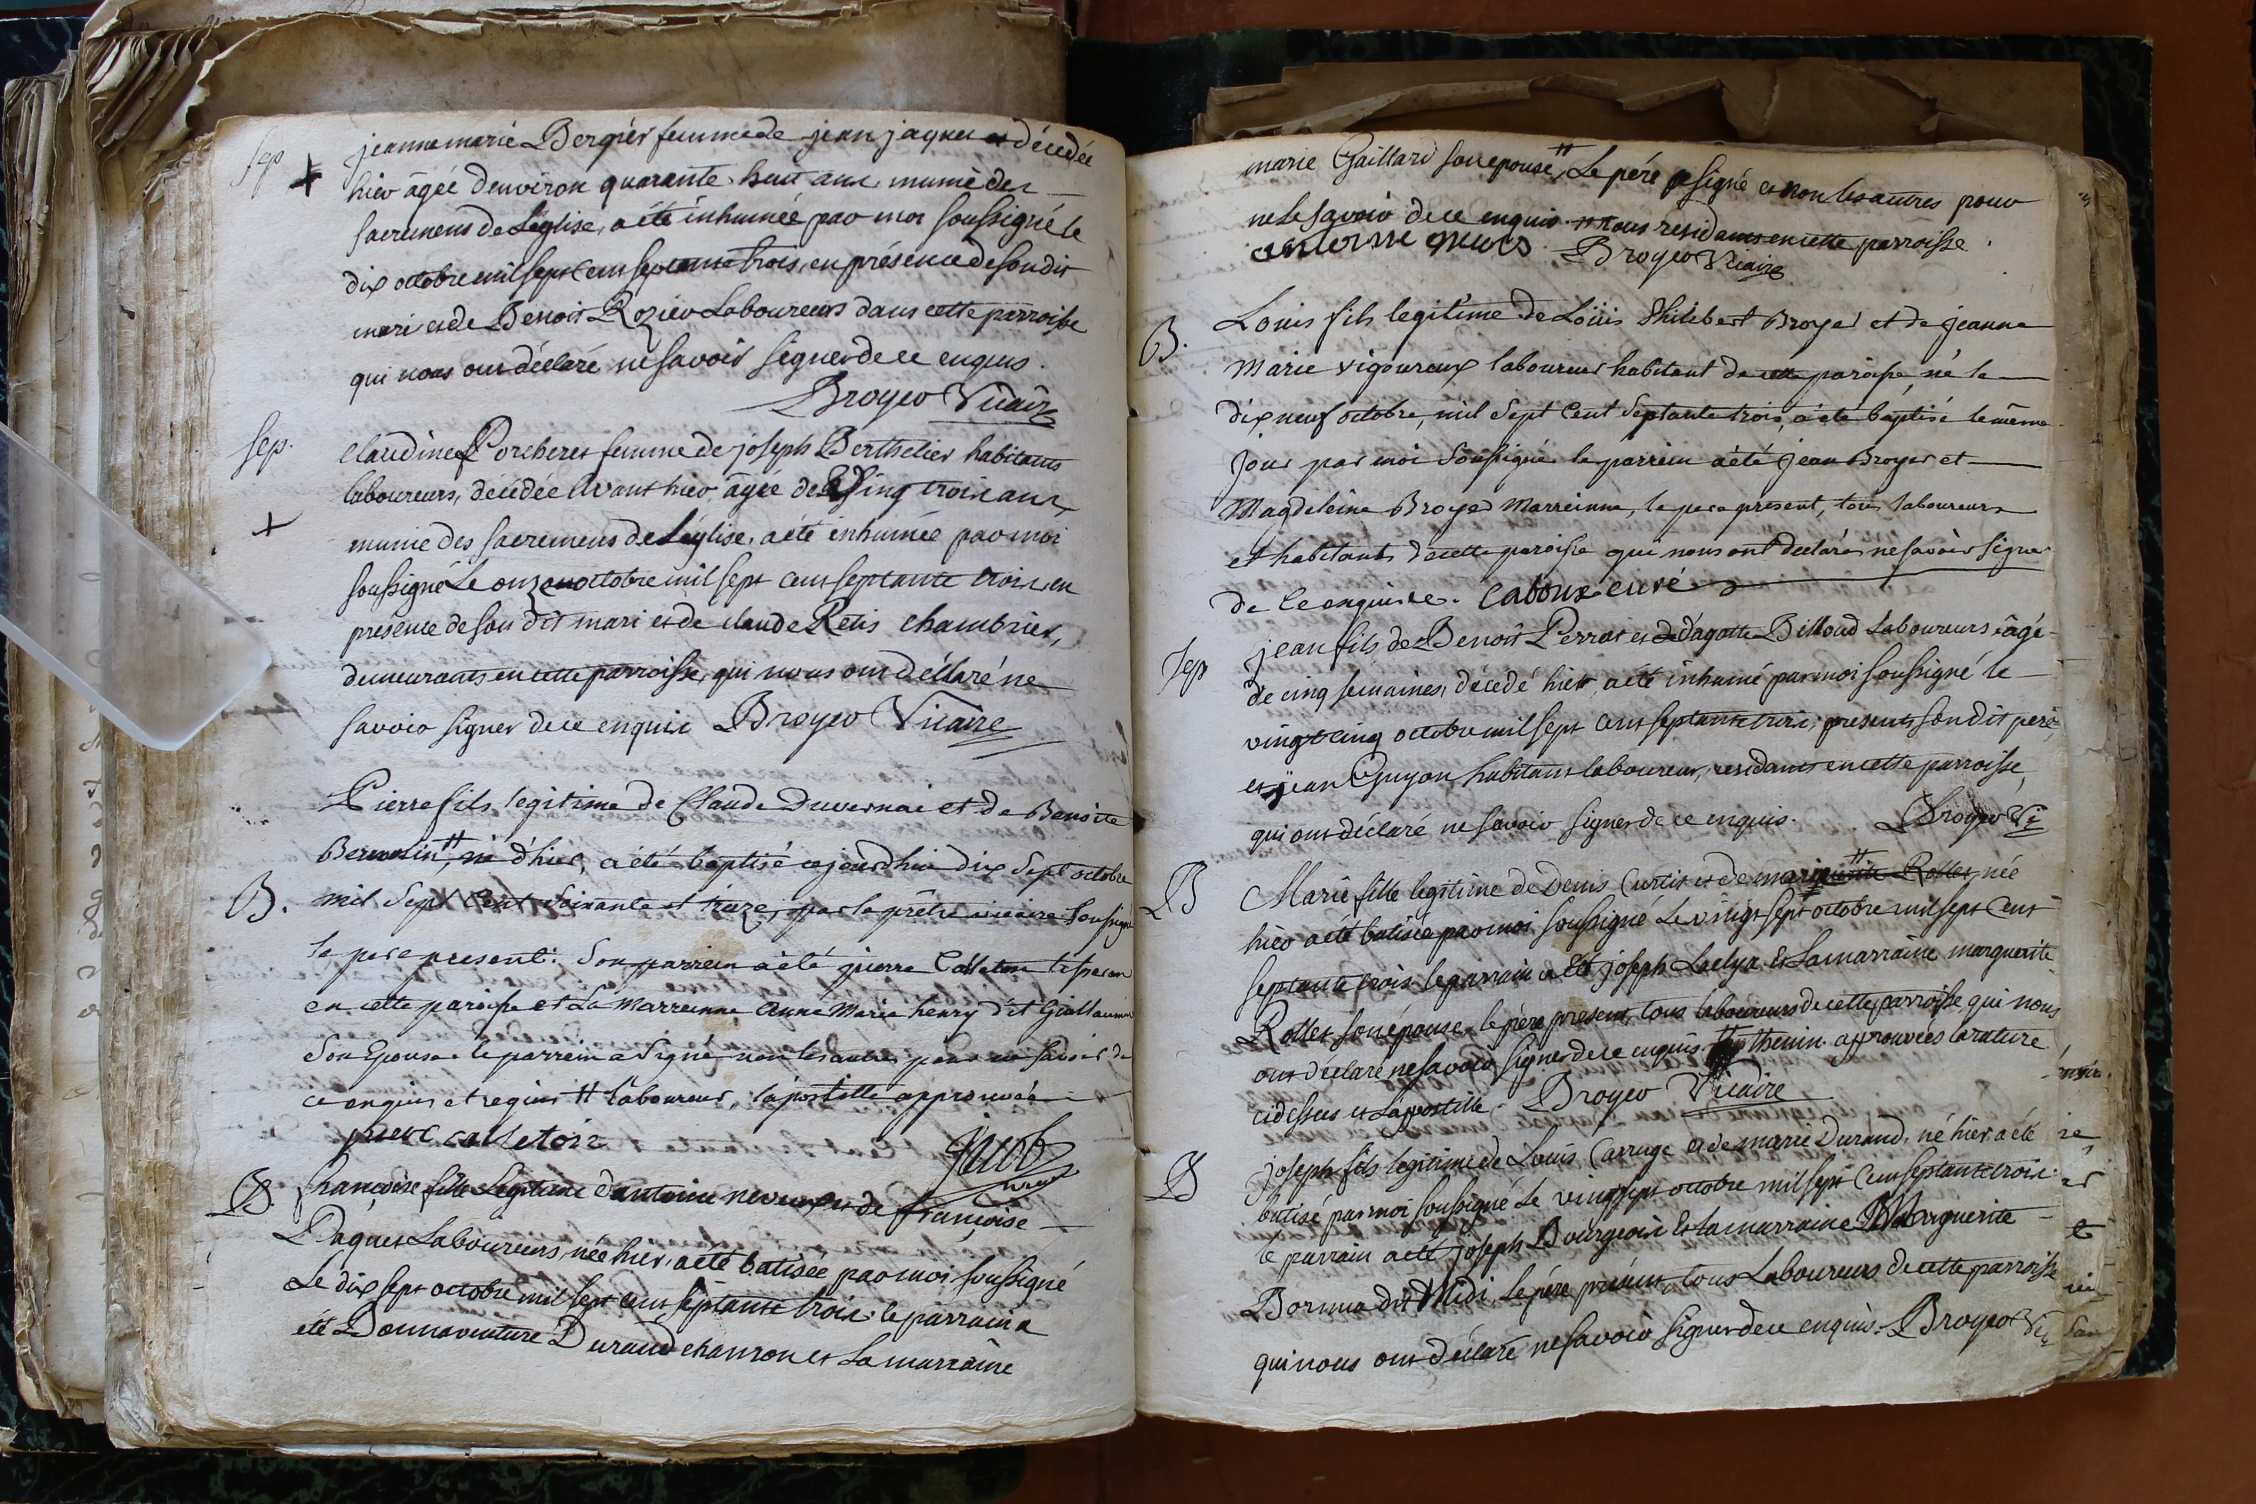 Sep
jeanne marie Bergier femme de jean jaquet et décedée
hier âgée denviron quarante huit ans munie des
sacremens de Léglise, a été inhumée par moi soussigné le
dix octobre mil sept cent septante trois, en présence de son dit
mari et de Benoit Rozier Laboureurs dans cette parroisse
qui nous ont déclaré ne savoir signer de ce enquis.
Broyer Vicaire
Sep.
Claudine Porcheret femme de joseph Berthelier habitants
laboureurs, décédée avant hier âgée de Ving trois ans
munie des sacremens de Léglise, a été inhumée par moi
soussigné Le onze octobre mil sept cent septante trois en
présence de son dit mari et de claude Retis chambrier,
demeurants en cette parroisse, qui nous ont déclaré ne
savoir signer de ce enquis Broyer Vicaire
Pierre fils legitime de Claude Duvernai et de Benoite
#, né d'hier, a été baptisé ce jourdhui dix Sept octobre
B. mil Sept Cent Soixante et treize, par le prêtre vicaire Soussigné
le pere present: Son parrein a été pierre
en cette paroisse et La Marreinne Anne Marie henry dit Guillaumin
Son Epouse. le parrein a Signé non les autres pour ne savoir de
ce enquis et requis # laboureur, lapostille approuvée
pierre
B. françoise fille Legitime dantoine neveux et de françoise
Paquet Laboureurs née hier, a été batisée par moi soussigné
Le dix sept octobre mil sept cent septante trois: le parrain a
été Bonnaventure Durand chanron et La marraine
marie Gaillard son epouse #, Le pére signé et non les autres pour
ne le savoir de ce enquis. # tous residants en cette parroisse.
Broyer Vicaire
B.
Louis fils legitime de Loüis Philibert Broyer et de jeanne
Marie vigoureux laboureur habitant de cette paroisse, né le
dix neuf octobre, mil Sept Cent Septante trois, a été baptisé le même
jour par moi Soussigné. le parrein a été jean Broyer et
Magdeleine Broyer Marreinne, le pere present, tous laboureurs
et habitants de cette paroisse qui nous ont declarés ne savoir signer
de Ce enquis &c. curé
Sep
jean fils de Benoit Perrat et d'agatte Billoud Laboureurs âgé
de cinq semaines, décedé hier a été inhumé par moi soussigné le
vingt cinq octobre mil sept cent septante trois; presents son dit pere
et jean Guyon habitans laboureur, residants en cette parroisse,
qui ont déclaré ne savoir signer de ce enquis. Broyer Vic
B
Marie fille legitime de Denis Curtit et de marguerite Rollet, née
hier a été batisée par moi soussigné Le vingt sept octobre mil sept cent
septante trois le parrain a été joseph Laelya et La marraine marguerite
Rollet son épouse, le père present, tous laboureurs de cette parroisse qui nous
ont déclaré ne savoir signer de ce enquis. # thenin approuvées la rature
cidessus et Lapostille. Broyer Vicaire
B
joseph fils legitime de Louis Carruge et de marie Durand, né hier, a été
batisé par moi soussigné Le vingsept octobre mil sept cent septante trois:
le parrain a été joseph Bourgeois et la marraine Marguerite
dit Midi, le pére présent, tous Laboureurs de cette parroisse
qui nous ont déclaré ne savoir signer de ce enquis. Broyer Vic